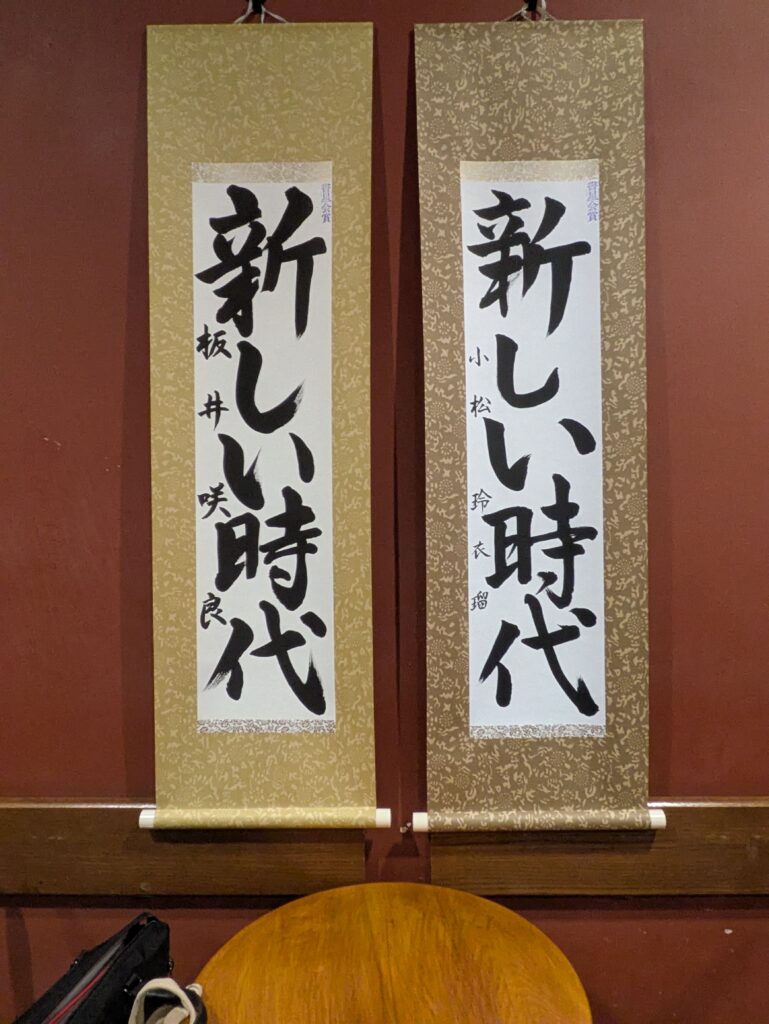 書星会賞
新しい時代
小松玲衣瑠
書星会賞
新しい時代
板井咲良